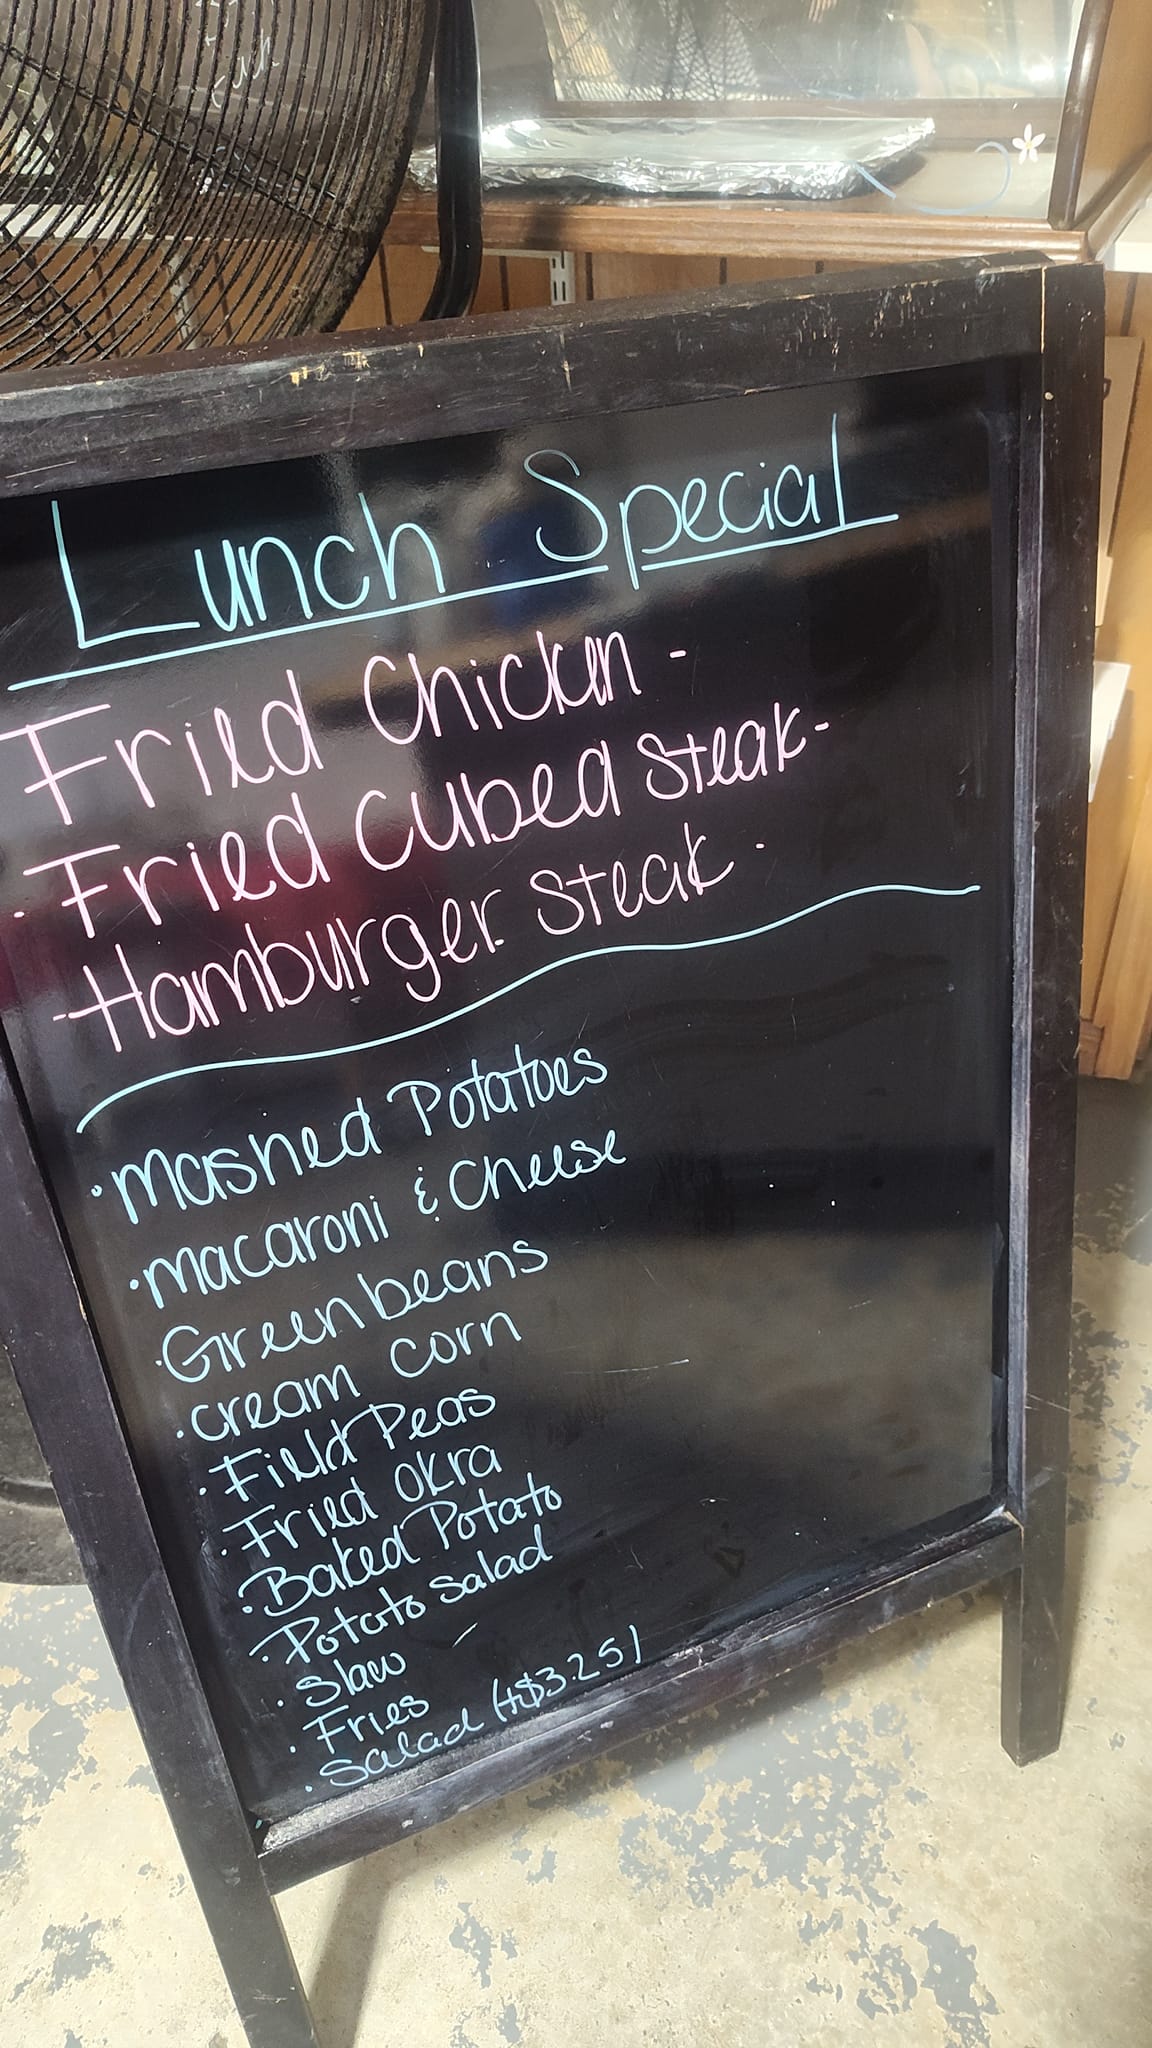 Lunch Special
Fried Chicken -
· Fried cubed Steak -
- Hamburger Steak -
· Mashed Potatoes
· Macaroni & Cheese
· Green beans
· cream corn
· Field Peas
· Fried Okra
· Baked Potato
· Potato Salad
· Slaw
· Fries
· Salad (+$3.25)